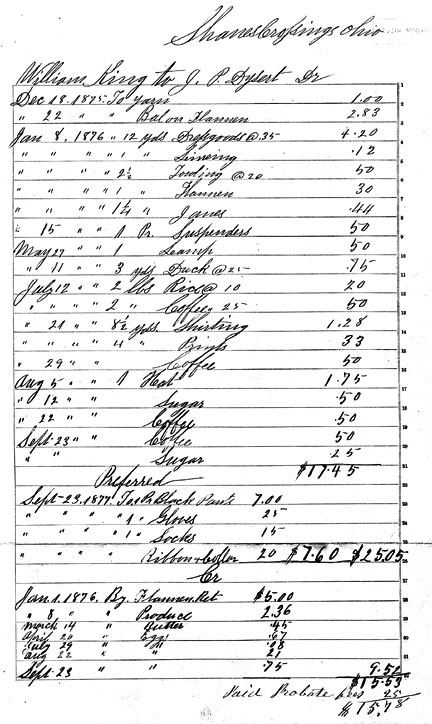 Shanes Crossings Ohio
William King to J. P. Dysert Dr
Dec 18. 1875 To yarn 1.00
" 22 " " Bal on Flannen 2.83
Jan 8, 1876 " 12 yds Dressgoods @ .35 4.20
" " " " 1 " Linering .12
" " " " 2 1/2 " @ 20 50
" " " " 1 " Flannen 30
" " " " 1 1/4 " Janes .44
" 15 " " 1 Pr. Suspenders 50
May 27 " " 1 Leamp 50
" 11 " " 3 yds Duck @ 25 .75
July 12 " " 2 lbs Rice @ 10 20
" " " " 2 " Coffee 25 50
" 21 " " 8 1/2 yds. Shirting 1.28
" " " " 4 " Prints 33
" 29 " " Coffee 50
Aug 5 " " 1 Hat 1.75
" 12 " " Sugar .50
" 22 " " Coffee .50
Sept 23 " " Coffee 50
" " Sugar 25
Preferred $17.45
Sept 23. 1877 To 1 Pr Black Pants 7.00
" " " " 1 " Gloves 25
" " " " 1 " Socks 15
" " " Ribbon & Coller 20 $7.60 $25.05
Cr
Jan 1. 1876, By Flannen Ret $5.00
" 8 " " Produce 2.36
March 14 " " Butter .45
April 20 " " Eggs .67
July 29 " " " .08
Aug 22 " " " 21
Sept 23 " " .75 9.52
$15.53
Paid Probate fees 25
$15.78